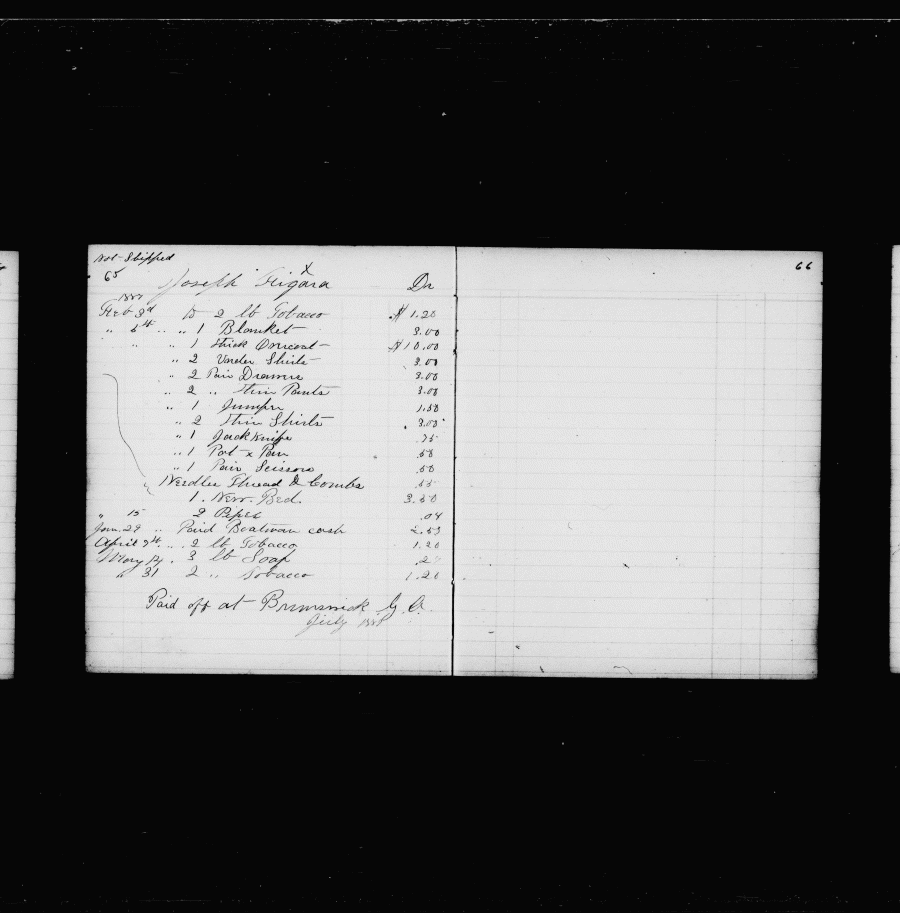 Not Shipped
65
Joseph Figara x Dr
Feb 3d To 2 lb Tobacco $1.20
" 6th " " 1 Blanket 3.00
" " 1 thick Overcoat $10.00
" 2 Under Shirts 3.00
" 2 Pair Drawers 3.00
" 2 " thin Pants 3.00
" 1 Jumper 1.50
" 2 thin Shirts 3.00
" 1 Jack Knife .75
" 1 Pot x Pan .50
" 1 Pair Scissors .50
Needles Thread & Combs
1. New. Bed. 3.50
" 15 2 Pipes .04
Jan. 29 " Paid Boatman cash
April 9th " " 2 lb Tobacco 1.20
May . 3 lb Soap
" 31 2 " Tobacco 1.20
Paid off at Brunswick G.A.
July
66